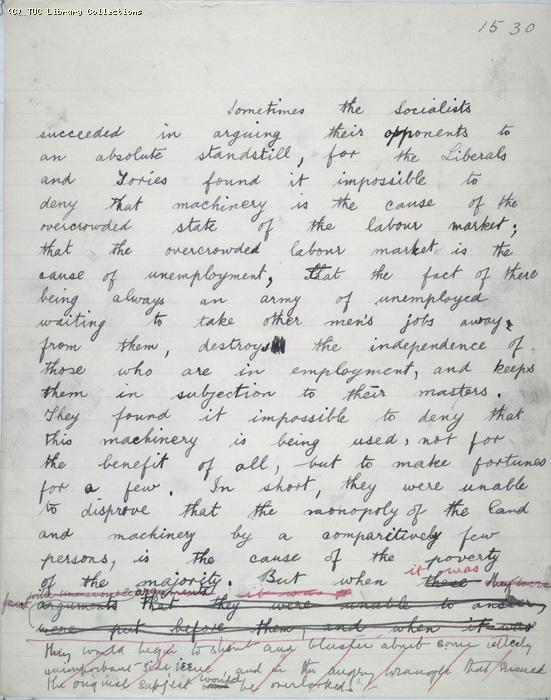 (C) TUC Library Collections
1530
Sometimes the Socialists
succeeded in arguing their opponents to
an absolute standstill, for the Liberals
and Tories found it impossible to
deny that machinery is the cause of the
overcrowded state of the labour market;
that the overcrowded labour market is the
cause of unemployment, that the fact of there
being always an army of unemployed
waiting to take other men's jobs away
from them, destroys the independence of
those who are in employment, and keeps
them in subjection to their masters.
They found it impossible to deny that
this machinery is being used, not for
the benefit of all, but to make fortunes
for a few. In short, they were unable
to disprove that the monopoly of the land
and machinery by a comparitively few
persons, is the cause of the poverty
it was
of the majority. But when these they were
arguments it was
arguments that they were unable to answer
were put before them, and when it was
they would begin to shout and bluster about some utterly
unimportant side issue and in the angry wrangle that ensued
the original subject would be overlooked.